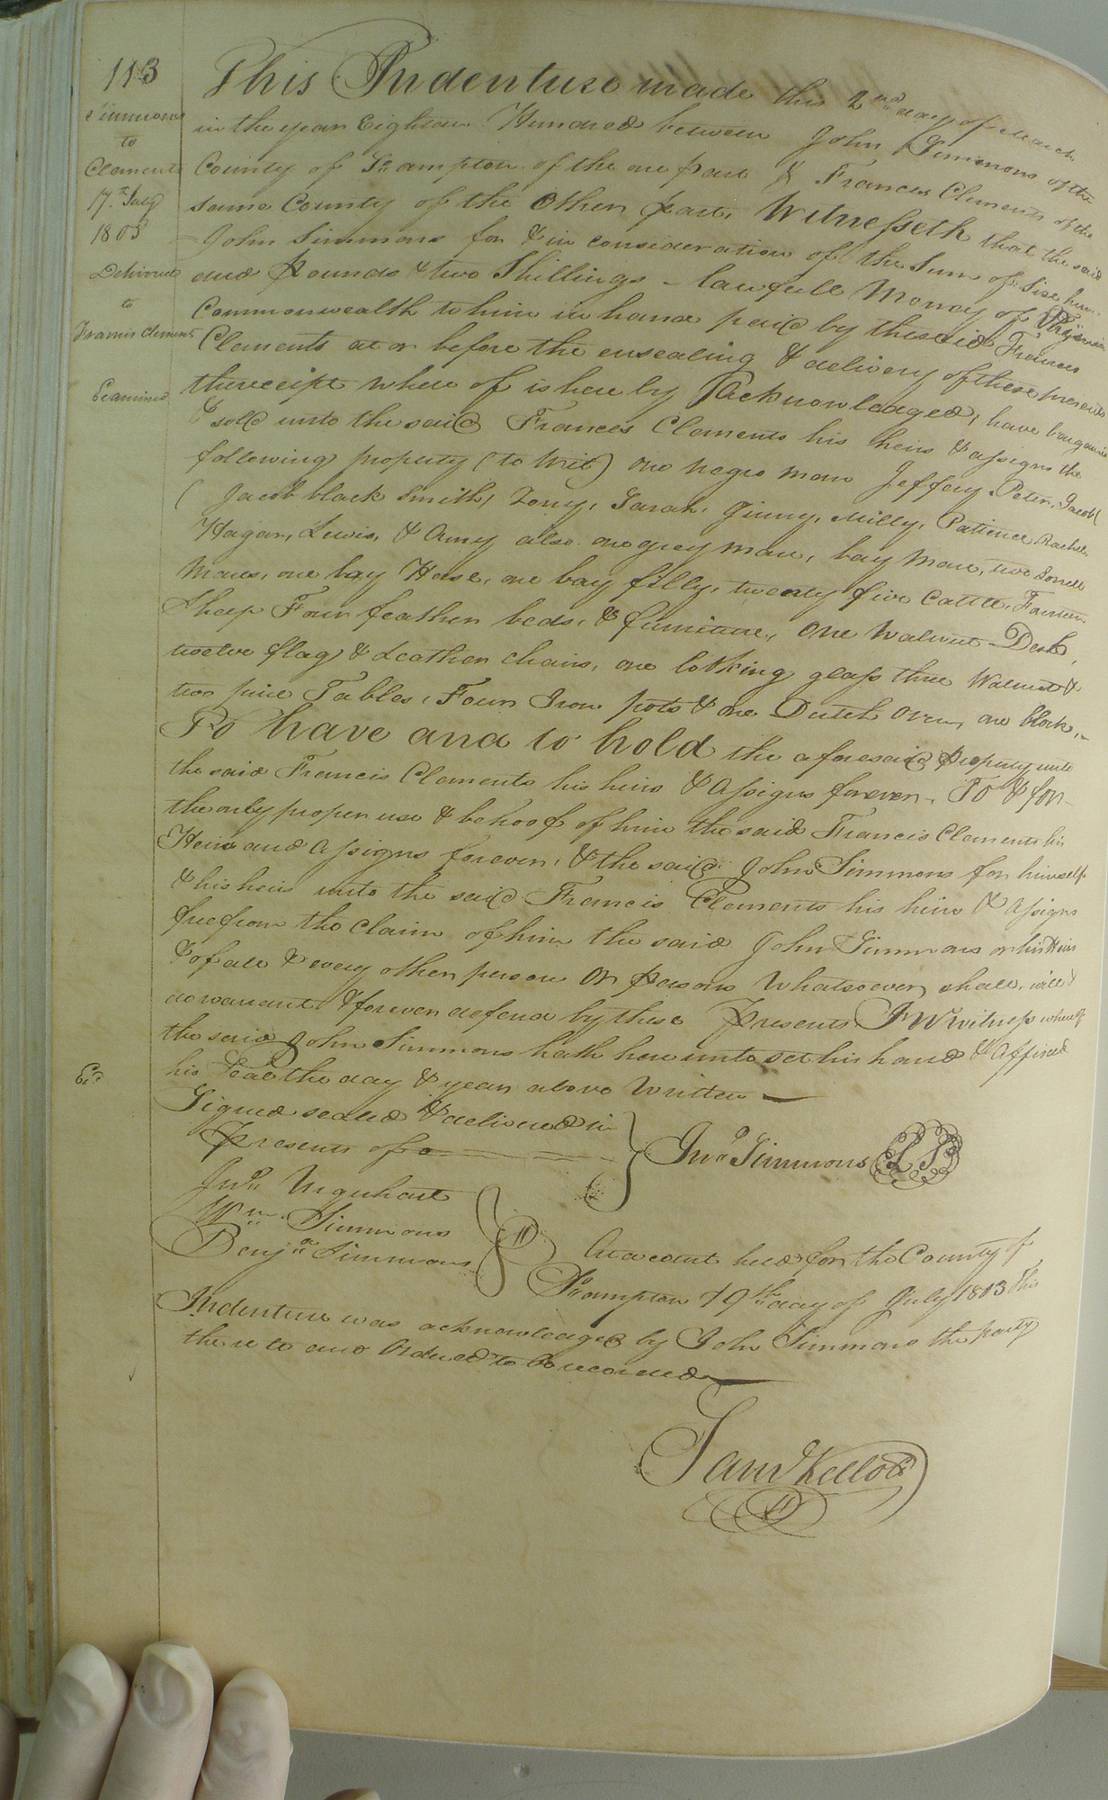 113
Simmons
to
Clements
17th July
1803
Delivered
to
Francis Clements
Examined
Exd
This Indenture made the 2nd day of March
in the year Eighteen Hundred between John Simmons of the
County of So ampton of the one part & Frances Clements of the
same County of the Other part, Witnesseth that the said
John Simmons for & in consideration of the Sum of Six hun
dred Pounds & two Shillings - lawfull Money of Virginia
Commonwealth to him in hand paid by the said Frances
Clements at or before the ensealing & delivery of these presents
the receipt where of is here by Acknowledged, have bargained
& sold unto the said Frances Clements his heirs & assigns the
following property (to Writ) one negro man Jeffery, Peter, Jacob
( Jacob black Smith, Tony, Sarah, Jinny, Milly, Patience Rachel
Hagar, Lewis, & Amy also one grey mare, bay Mare, two Sorrell
Mares, one bay Horse, one bay filly, twenty five Cattle,
Sheep Four feather beds, & furniture, One Walnut Desk,
twelve flag & Leather Chairs, one looking glass three Walnut &
two pine Tables, Four Iron pots & one Dutch Oven, one block,
To have and to hold the aforesaid property unto
the said Francis Clements his heirs & Assigns forever, To & for
the only proper use & behoof of him the said Francis Clements his
Heirs and Assigns forever, & the said John Simmons for himself
& his heirs unto the said Francis Clements his heirs & Assigns
free from the claim of him the said John Simmons or his Heirs
& of all & every other person Or Persons Whatsoever, shall, will &
do warrant & forever defend by these Presents In Witness whereof
the said John Simmons hath here unto set his hand & Affixed
his Seal the day & year above Written
Signed sealed & delivered in
Presents of
Jno Simmons LS
Jno Urquhart
Wm Simmons
Benja Simmons
At a court held for the County of
So hampton 19th day of July 1803 This
Indenture was acknowledged by John Simmons the party
there to and Ordered to be recorded
Saml Kello